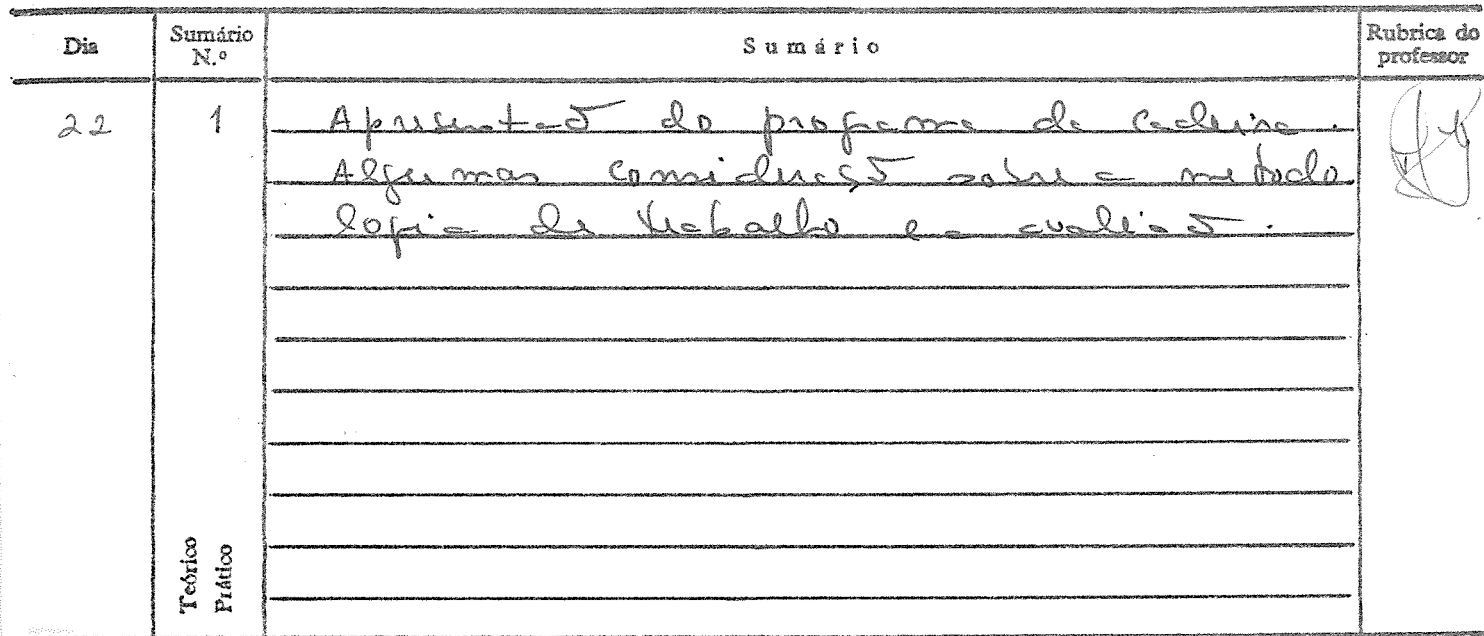 Dia Sumário N.º Sumário Rubrica do professor
22 1 Apresentação do programa da cadeira.
Algumas consideraçõ sobre a metodo
logia de trabalho e a avaliação.
Teórico
Prático